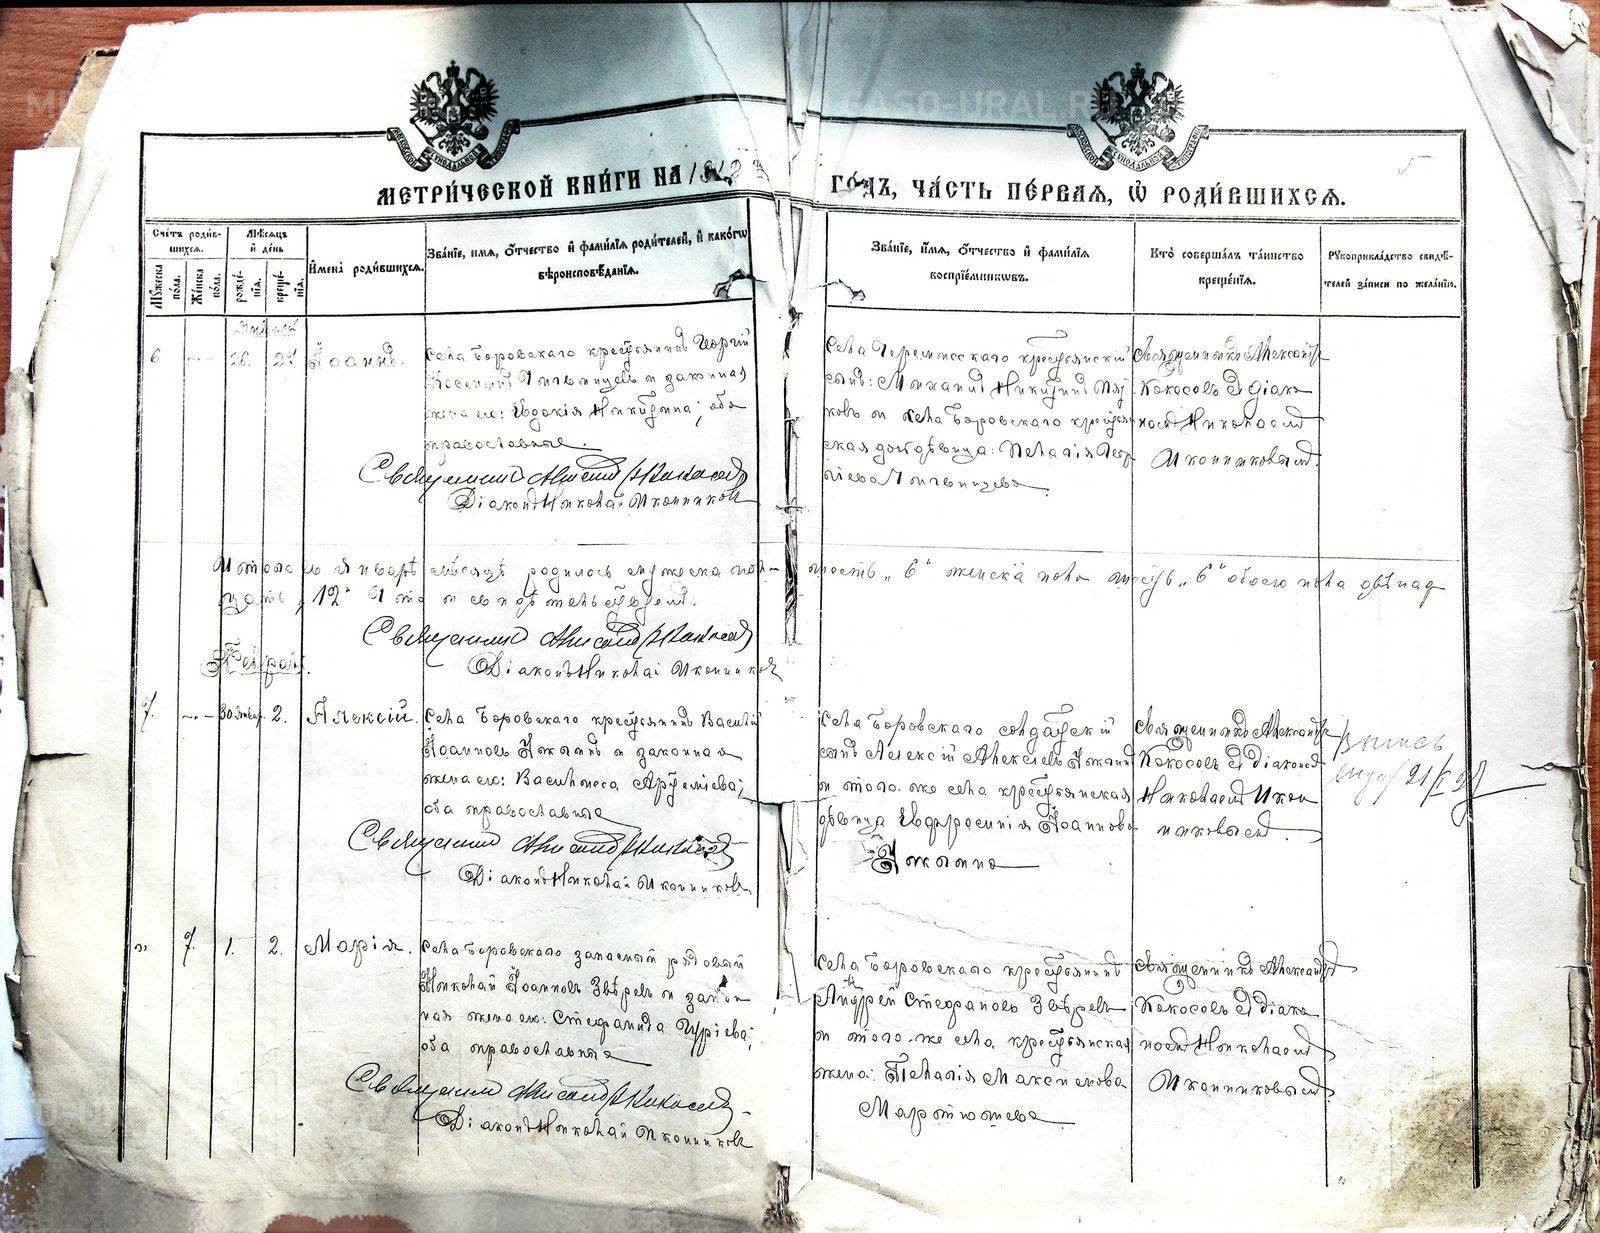 МЕТРИ́ЧЕСКОЙ КНИ́ГИ НА
ГО́ДЪ, ЧА́СТЬ ПЕ́РВАЯ, Ѡ РОДИ́ВШИХСЯ.
Сче́тъ роди́в-
шихся.
Му́жеска
по́ла.
Же́нска
по́ла.
Мѣ́сяцъ
и де́нь
рожде́-
нїя.
креще́-
нїя.
Имена̀ роди́вшихся.
Зва́нїе, и́мя, о́тчество и фами́лїя роди́телей, и како́гѡ
вѣроисповѣ́данїя.
Зва́нїе, и́мя, о́тчество и фами́лїя
воспрїе́мниковъ.
Кто̀ соверша́лъ та́инство
креще́нїя.
Рукоприкла́дство свидѣ́-
телей за́писи по жела́нїю.
5
6 26. 25 Іоаннъ.
Села Боровскаго крестьянинъ Георгій
и законная
жена его: Евдокія Никитина; оба
православные.
Священникъ Александръ Кокосовъ
Діаконъ Николай Иконниковъ
Села Черемисскаго крестьянскій
сынъ: Михаилъ Никитинъ
ковъ и села Боровскаго крестьян-
ская дочь дѣвица: Пелагія Геор-
гіева
Священникъ Александръ
Кокосовъ съ діако-
номъ Николаемъ
Иконниковымъ.
Итого въ Январѣ мѣсяцѣ родилось мужеска пола шесть „6" женска пола шесть „6" обоего пола двѣнад-
цать „12" Что и свидѣтельствуемъ.
Священникъ Александръ Кокосовъ
Діаконъ Николай Иконниковъ
Февраль.
7. 30 январ. 2. Алексій.
Села Боровскаго крестьянинъ Василій
Іоанновъ и законная
жена его: Василиса Артеміева;
оба православные
Священникъ Александръ Кокосовъ
Діаконъ Николай Иконниковъ
Села Боровскаго солдатскій
сынъ Алексій Алексіевъ
и того-же села крестьянская
дѣвица Евфросинія Іоаннова
Священникъ Александръ
Кокосовъ съ діакономъ
Николаемъ Икон-
никовымъ.
21/I
7. 1. 2. Марія.
Села Боровскаго запасный рядовый
Николай Іоанновъ Звѣревъ и закон-
ная жена его: Стефанида Гурієва;
оба православные
Священникъ Александръ Кокосовъ
Діаконъ Николай Иконниковъ
Села Боровскаго крестьянинъ
Андрей Стефановъ Звѣревъ
и того-же села крестьянская
жена: Пелагія Максимова
Мартюшева
Священникъ Александръ
Кокосовъ съ діако-
номъ Николаемъ
Иконниковымъ